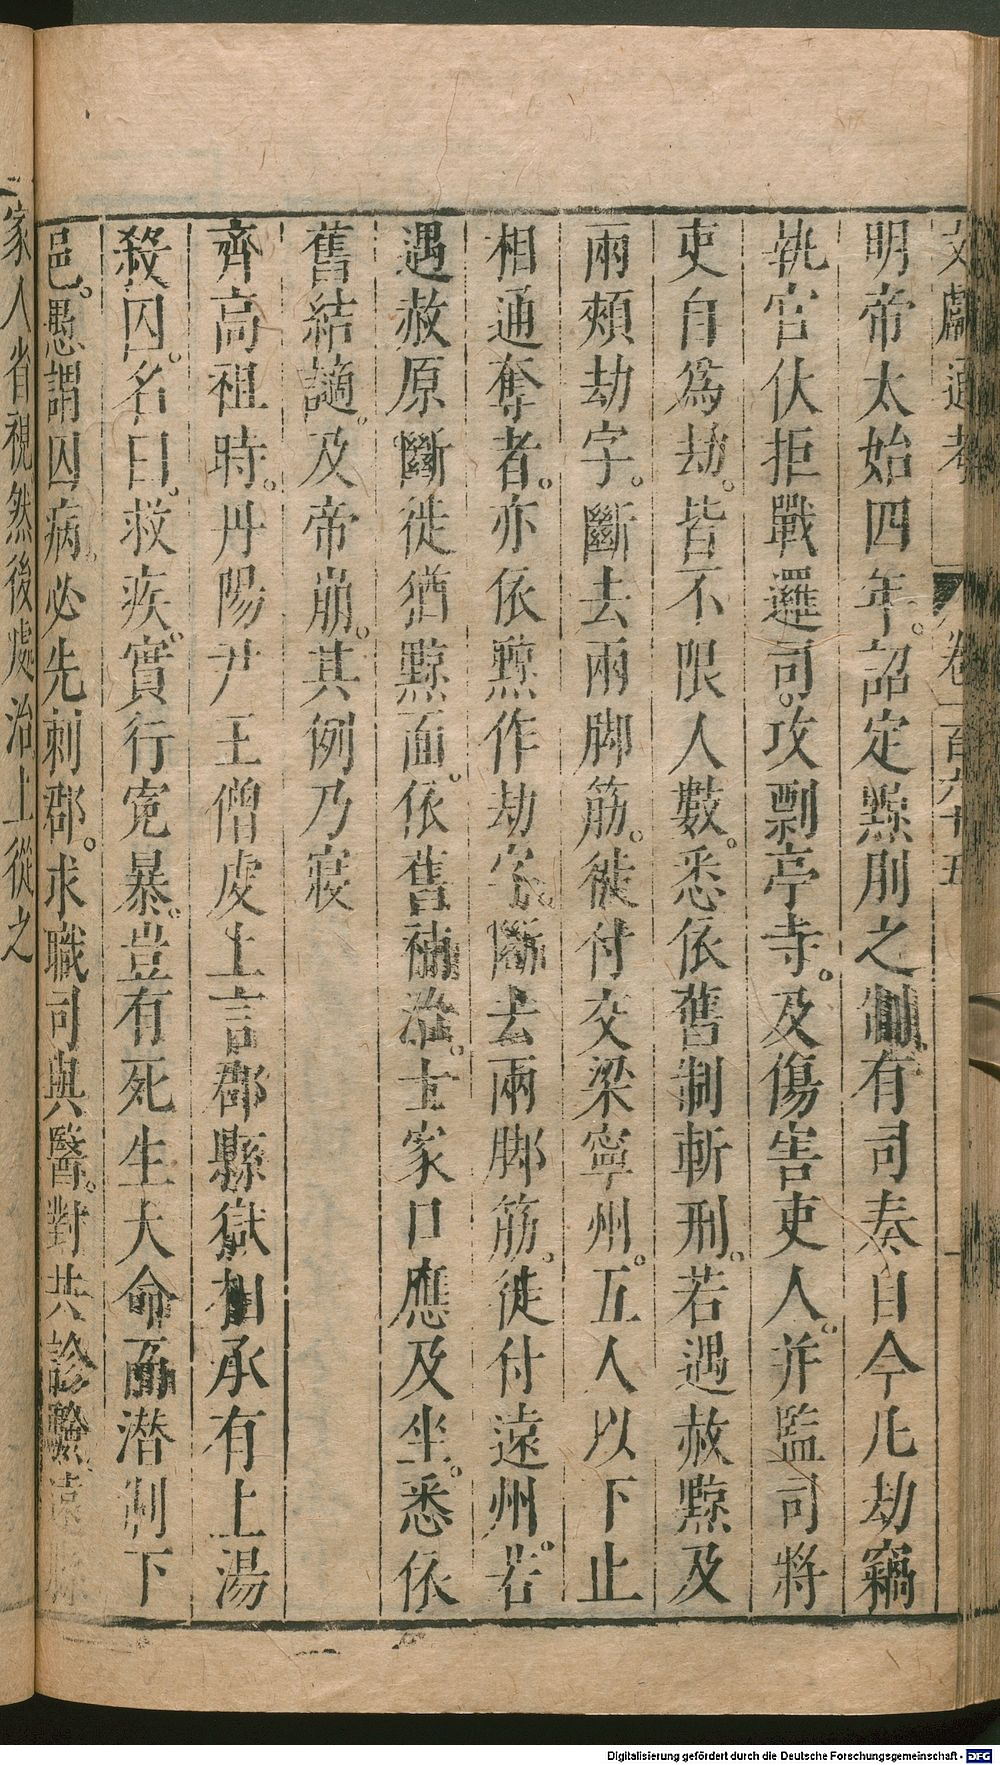 文獻通考 卷一百六十五
明帝太始四年。詔定黥刖之制有司奏自今凡劫竊
執官仗拒戰邏司。攻剽亭寺。及傷害吏人。并監司將
吏自爲劫。皆不限人數。悉依舊制斬刑。若遇赦黥及
兩頰劫字。斷去兩脚筋。徙付交梁寧州。五人以下止
相逼奪者。亦依黥作劫字。斷去兩脚筋。徙付遠州。若
遇赦原斷徙猶黥面。依舊補治。士家口應及坐。悉依
舊結讁。及帝崩。其例乃寢
齊高祖時。丹陽尹王僧虔上言郡縣獄相承有上湯
殺囚。名曰。救疾。實行寃暴。豈有死生大命而潜制下
邑。愚謂囚病。必先刺郡。求職司與醫。對共診驗。遠縣
家人省視然後處治上從之
Digitalisierung gefördert durch die Deutsche Forschungsgemeinschaft - DFG